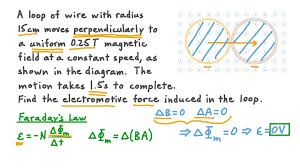 A loop of wire with radius
15cm moves perpendicularly to
a uniform 0.25T magnetic
field at a constant speed, as
shown in the diagram. The
motion takes 1.5s to complete.
Find the electromotive force induced in the loop.
Faraday's Law
ε = -N ΔΦm/Δt
ΔΦm = Δ(BA)
ΔB=0 ΔA=0
⇒ ΔΦm = 0 ⇒ ε = 0V